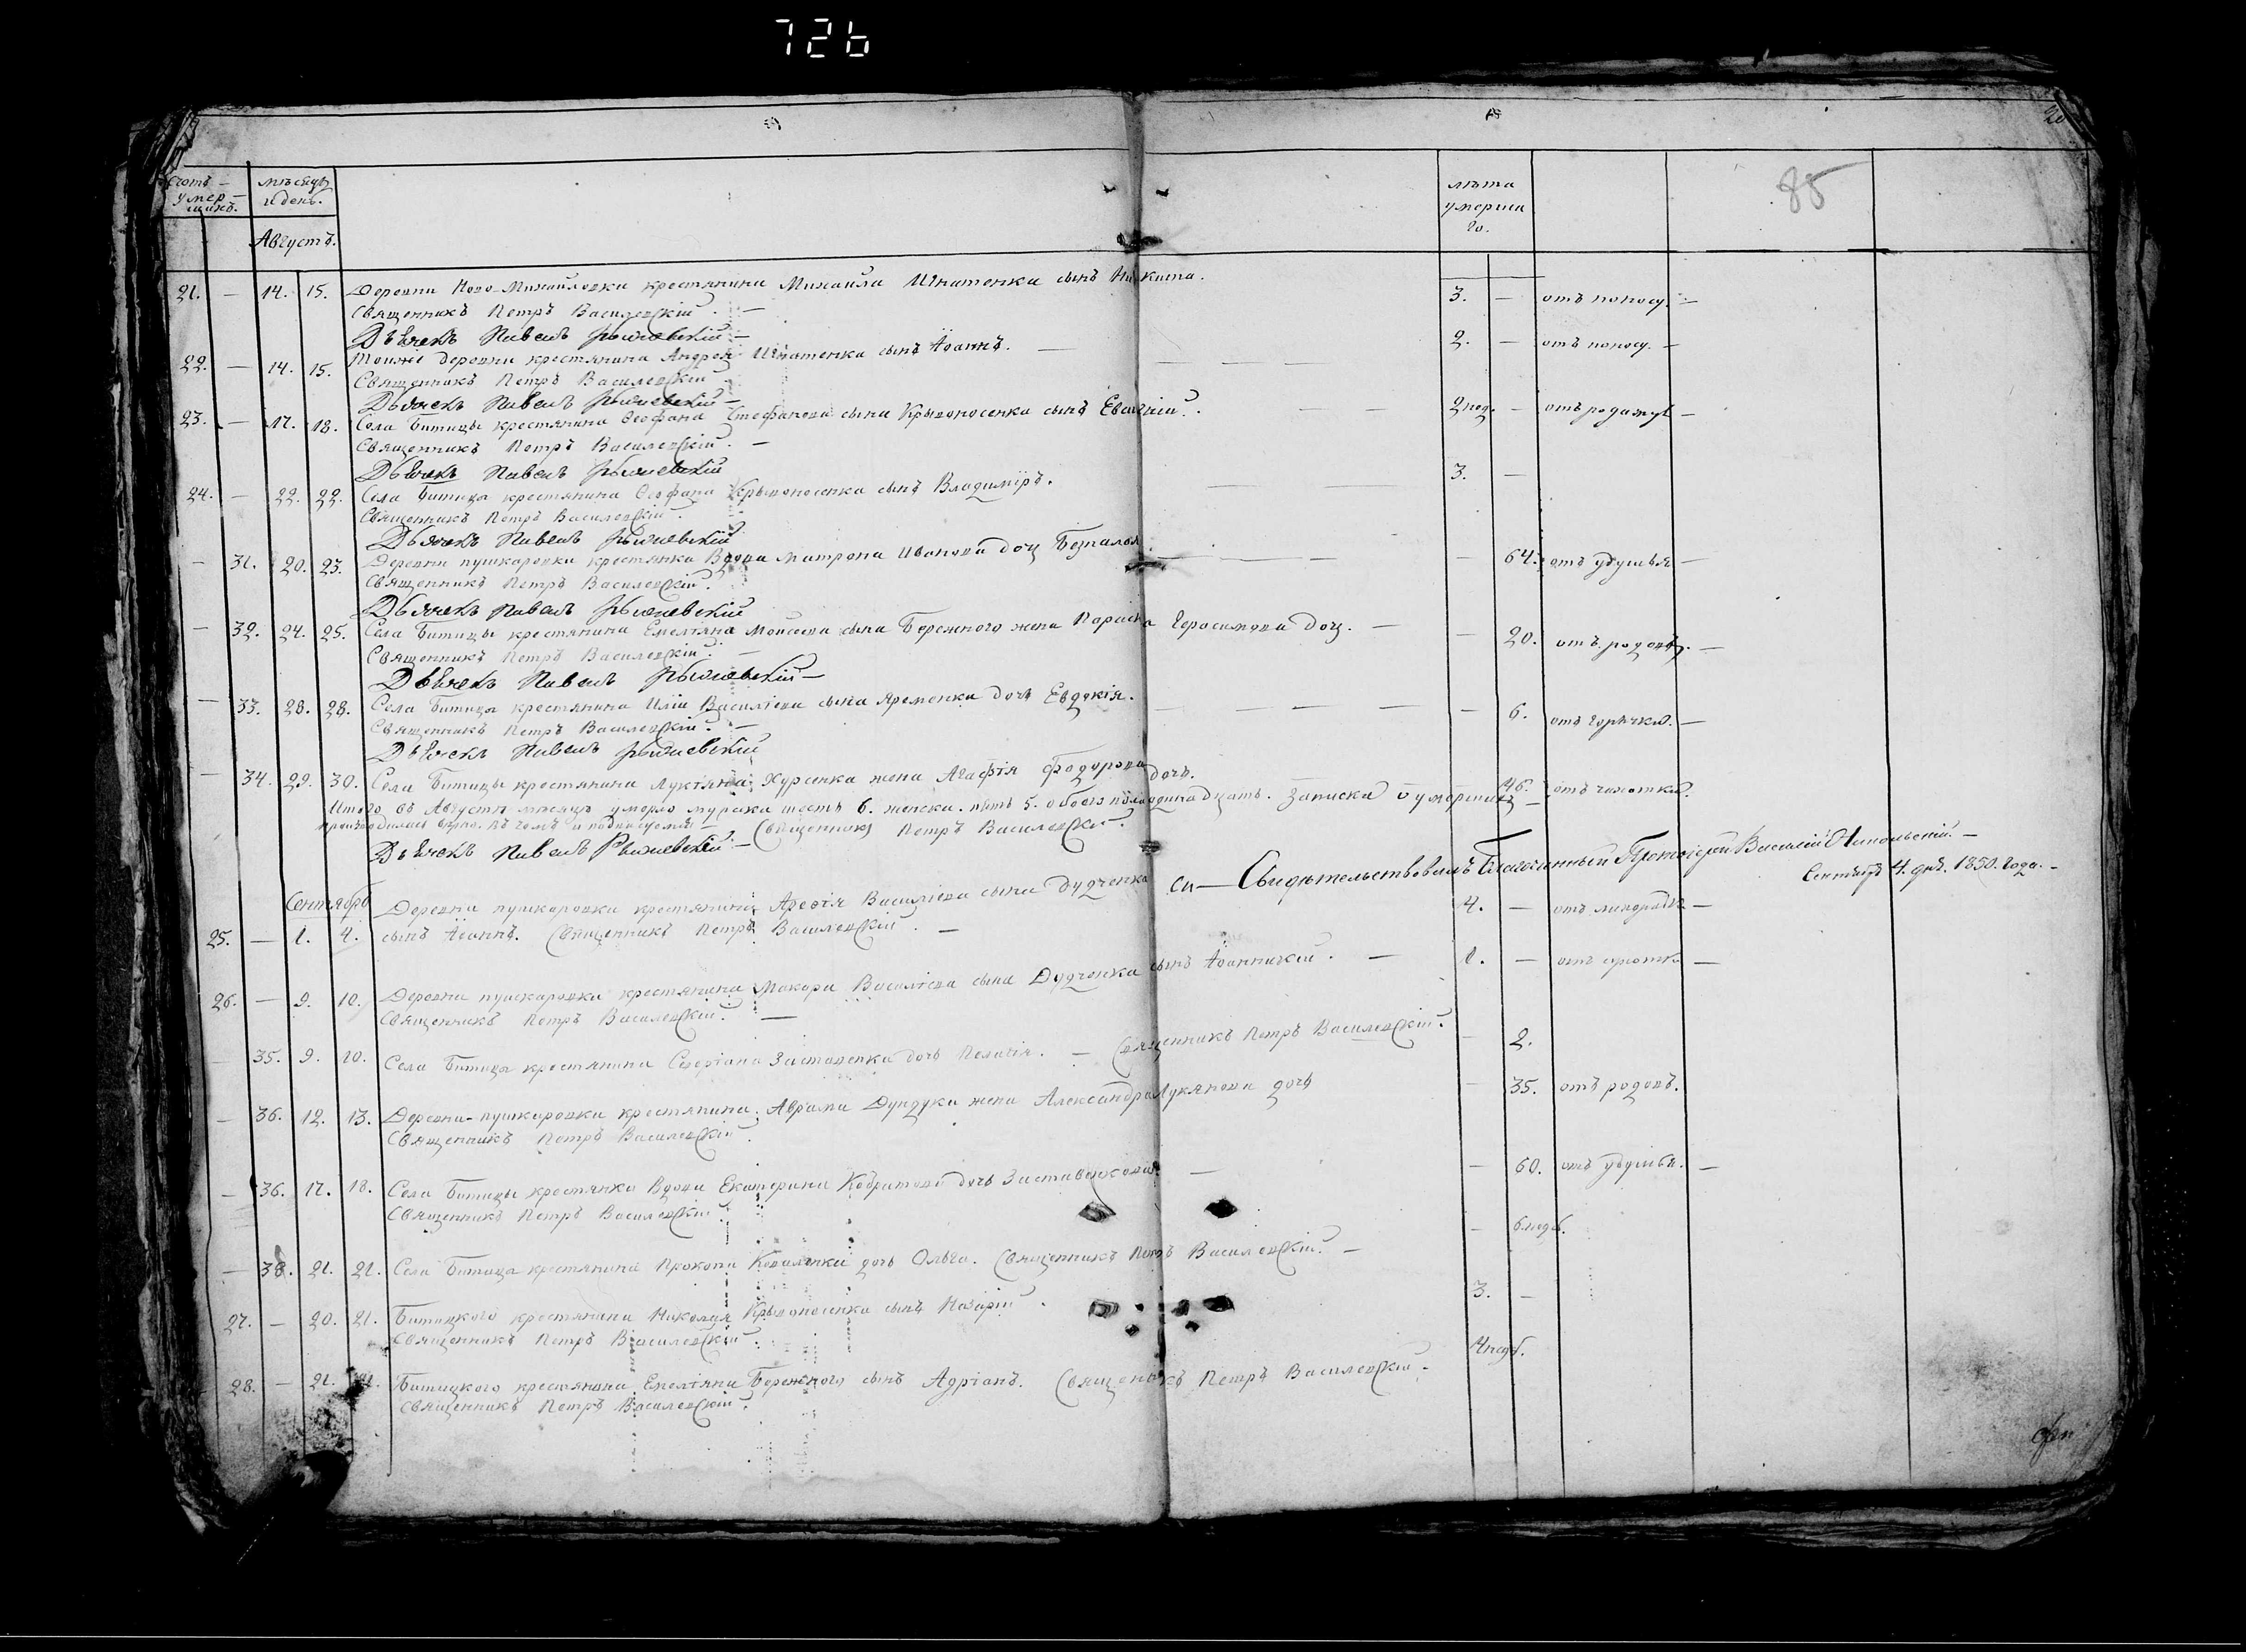 726
20
85
Счотъ умер-шихъ.
мѣсяцъ и день.
Августъ.
лѣта умерша го.
21. — 14. 15. Деревни Ново-Михайловки крестянина Михаила Игнатенка сынъ Никита. 3. — отъ поносу. —
Священникъ Петръ Василевскій. —
Дьячекъ Павелъ Рыжевскій —
22. — 14. 15. Тоижѣ деревни крестянина Андрея Игнатенка сынъ Іоаннъ. — 2. — отъ поносу. —
Священникъ Петръ Василевскій
Дьячекъ Павелъ Рыжевскій —
23. — 17. 18. Села Битицы крестянина Феофана Стефанова сына Крывоносенка сынъ Евгеній. 2 нед. —
Священникъ Петръ Василевскій. —
Дьячекъ Павелъ Рыжевскій
24. — 22. 22. Села Битица крестянина Феофана Крывоносенка сынъ Владиміръ. 3. —
Священникъ Петръ Василевскій.
Дьячекъ Павелъ Рыжевскій
— 31. 20. 23. Деревни пушкаровки крестянка Вдова Матрона Иванова доч — 64. отъ удушья —
Священникъ Петръ Василевскій.
Дьячекъ Павелъ Рыжевскій
— 32. 24. 25. Села Битицы крестянина Емелтяна Моисеева сына Бережного жена Параска Герасимова доч. — — 20. отъ родовъ. —
Священникъ Петръ Василевскій. —
Дьячекъ Павелъ Рыжевскій —
— 33. 28. 28. Села Битица крестянина Иліи Василіева сына Яременка дочь Евдокія. — 6. отъ горячки. —
Священникъ Петръ Василевскій. —
Дьячекъ Павелъ Рыжевскій
— 34. 29. 30. Села Битицы крестянина Луктяна Хурсенка жена Агафія Федорова дочь. 46. отъ чахотки.
Итого въ Августѣ мѣсяцѣ умерло мужска шесть 6. женска. пять 5. обоего пола одинадцать. Записка о умершихъ —
производилась вѣрно. въ чемъ и подписуемся — Священникъ Петръ Василевскій.
Дьячекъ Павелъ Рыжевскій —
Сіи — Свидѣтельствовалъ Благочинный Протоіерей Василій Никольскій. —
Сентября 4. дня. 1850. года. —
Сентябрь
Деревни пушкаровки крестянина Арефія Василіева сына Дудченка 4. — отъ лихорадки —
25. — 1. 4. сынъ Іоаннъ. Священникъ Петръ Василевскій. —
26. — 9. 10. Деревни пушкаровки крестянина Макара Василіева сына Дудченка сынъ Іоанникій. — 1. —
Священникъ Петръ Василевскій. —
— 35. 9. 10. Села Битицы крестянина Заставенка дочь Пелагія. — Священникъ Петръ Василевскій. — 2.
— 36. 12. 13. Деревни-пушкаровки крестянина Аврама Дундука жена Александра Лукянова дочь — 35. отъ родовъ.
Священникъ Петръ Василевскій.
— 36. 17. 18. Села Битицы крестянка Вдова Екатерина Кодратова дочь — 60. отъ удушья. —
Священникъ Петръ Василевскій.
— 38. 21. 21. Села Битица крестянина Прокопа Коваленка дочь Ольга. Священникъ Петръ Василевскій. — — 6 недѣ.
27. — 20. 21. Битицкого крестянина Николая Крывоносенка сынъ Назарій. 3. —
Священникъ Петръ Василевскій.
28. — 21. 21. Битицкого крестянина Емелтяна Бережного сынъ Адріанъ. Священикъ Петръ Василевскій. 4 недѣ.
Священникъ Петръ Василевскій.